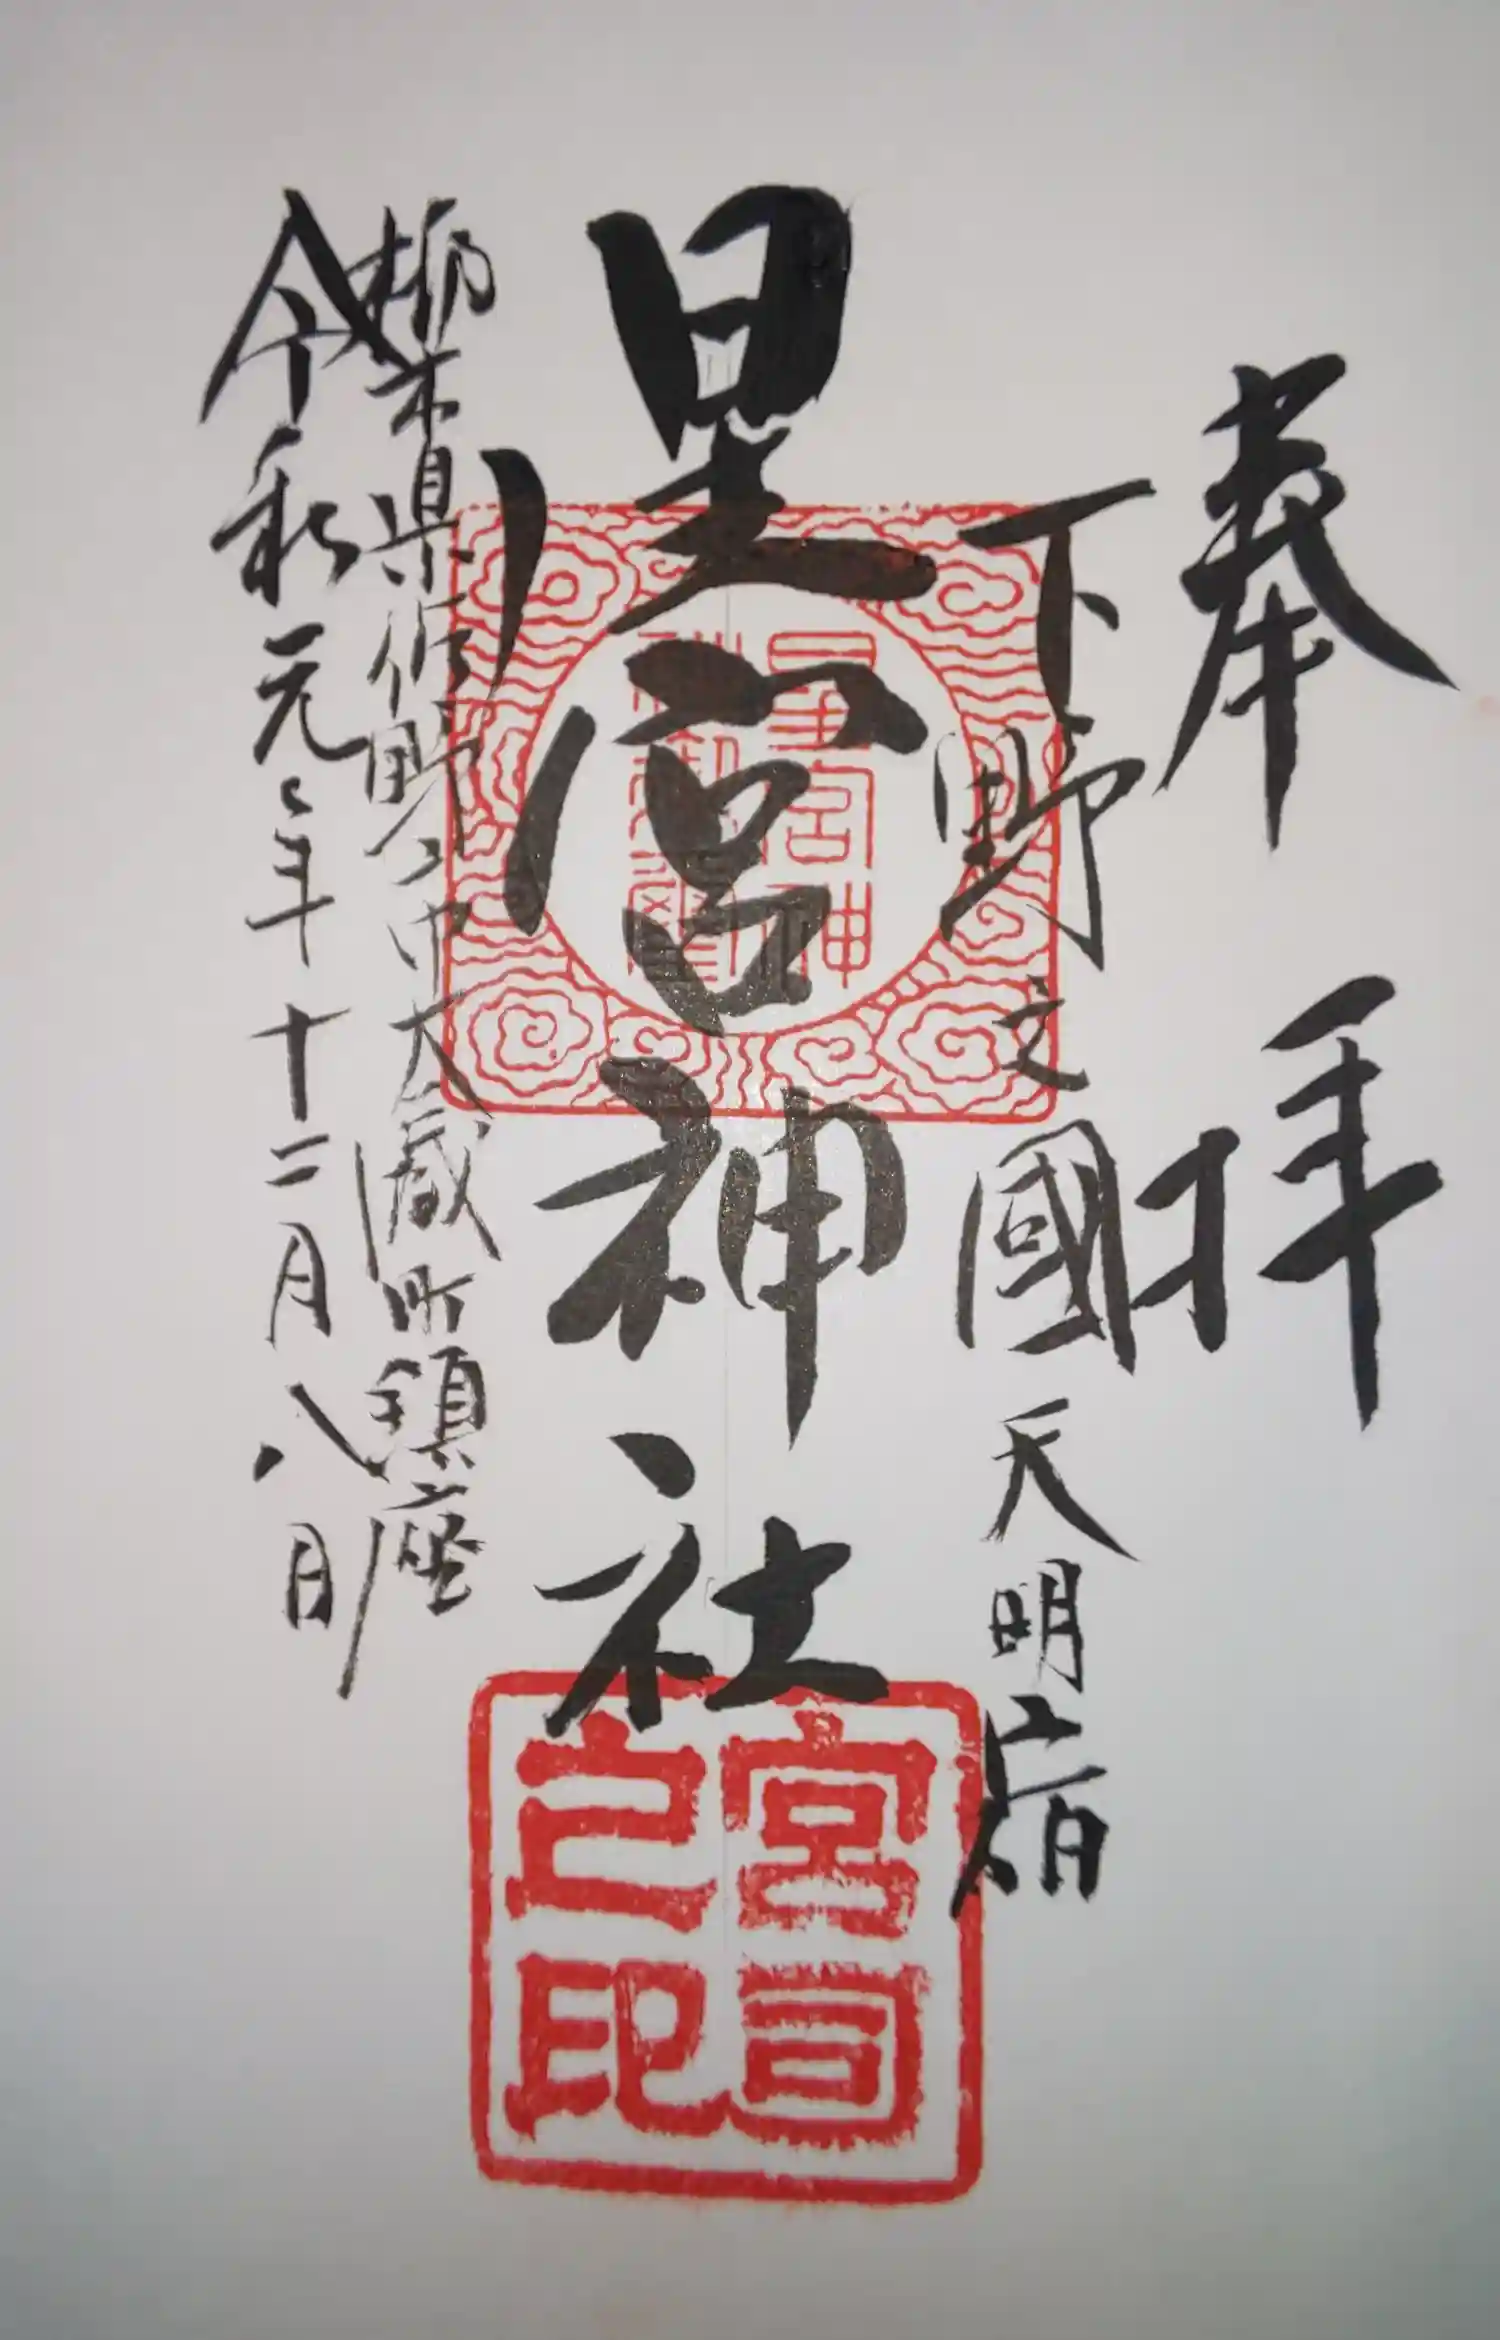 奉拝
下野之國 天明宿
星宮神社
栃木県佐野市大蔵町鎮座
令和元年十二月八日
宮司之印